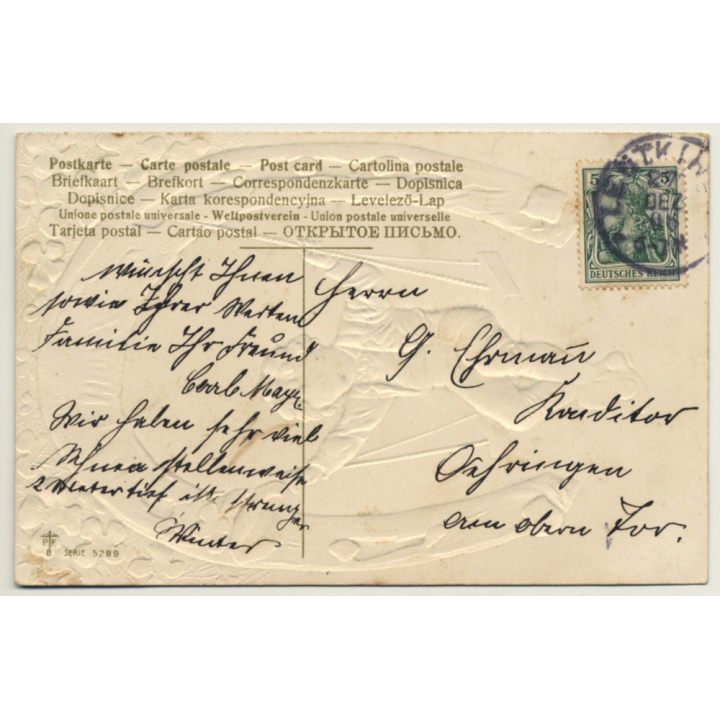 Postkarte — Carte postale — Post card — Cartolina postale
Briefkaart — Brefkort — Correspondenzkarte — Dopisnica
Dopisnice — Karta korespondencyjna — Levelező-Lap
Unione postale universale - Weltpostverein - Union postale universelle
Tarjeta postal — Cartão postal — ОТКРЫТОЕ ПИСЬМО.
wünscht Ihnen
sowie Ihrer Werten
Familie Ihr Freund
Carl Mayr.
Wir haben sehr viel
Schnee stellenweise
2 Meter tief ist strenger
Winter
PF
B SERIE 5289
Herrn
G. Ehrmañ
Konditor
Oehringen
am obern Tor.
5 5
DEUTSCHES REICH
DEZ